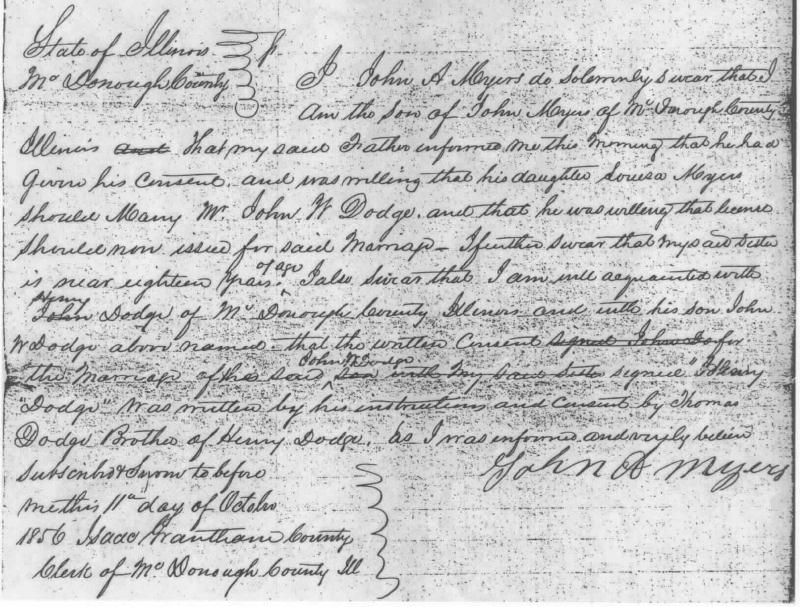 State of Illinois
McDonough County
I John A Myers do Solemnly swear that I
Am the son of John Myers of McDonough County
Illinois and That my said Father informed me this morning that he had
Given his Consent, and was willing that his daughter Louisa Myers
should Marry Mr. John W Dodge. and that he was willing that license
should now issued for said Marriage - I further swear that my said Sister
is near eighteen years of age. I also swear that I am well acquainted with
John Henry Dodge of McDonough County Illinois and with his son John
W Dodge above named - that the written Consent signed John Do for
the Marriage of his said son John W Dodge with my said Sister signed "Henry
"Dodge" Was written by his instructions and Consent by Thomas
Dodge Brother of Henry Dodge. as I was informed and verily believe
John A Myers
Subscribed & Sworn to before
me this 11th day of Octobr
1856 Isaac Grantham County
Clerk of McDonough County Ill